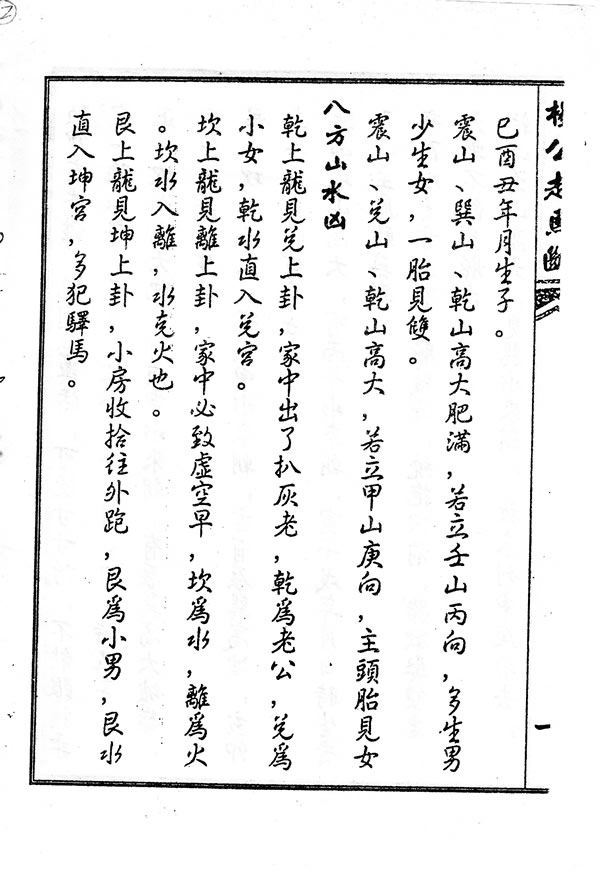 楊公走馬斷
巳酉丑年月生子。
震山、巽山、乾山高大肥滿，若立壬山丙向，多生男
少生女，一胎見雙。
震山、兌山、乾山高大，若立甲山庚向，主頭胎見女
八方山水凶
乾上龍見兌上卦，家中出了扒灰老，乾爲老公，兌爲
小女，乾水直入兌宮。
坎上龍見離上卦，家中必致虛空早，坎爲水，離爲火
。坎水入離，水克火也。
艮上龍見坤上卦，小房收拾往外跑，艮爲小男，艮水
直入坤宮，多犯驛馬。
一
2